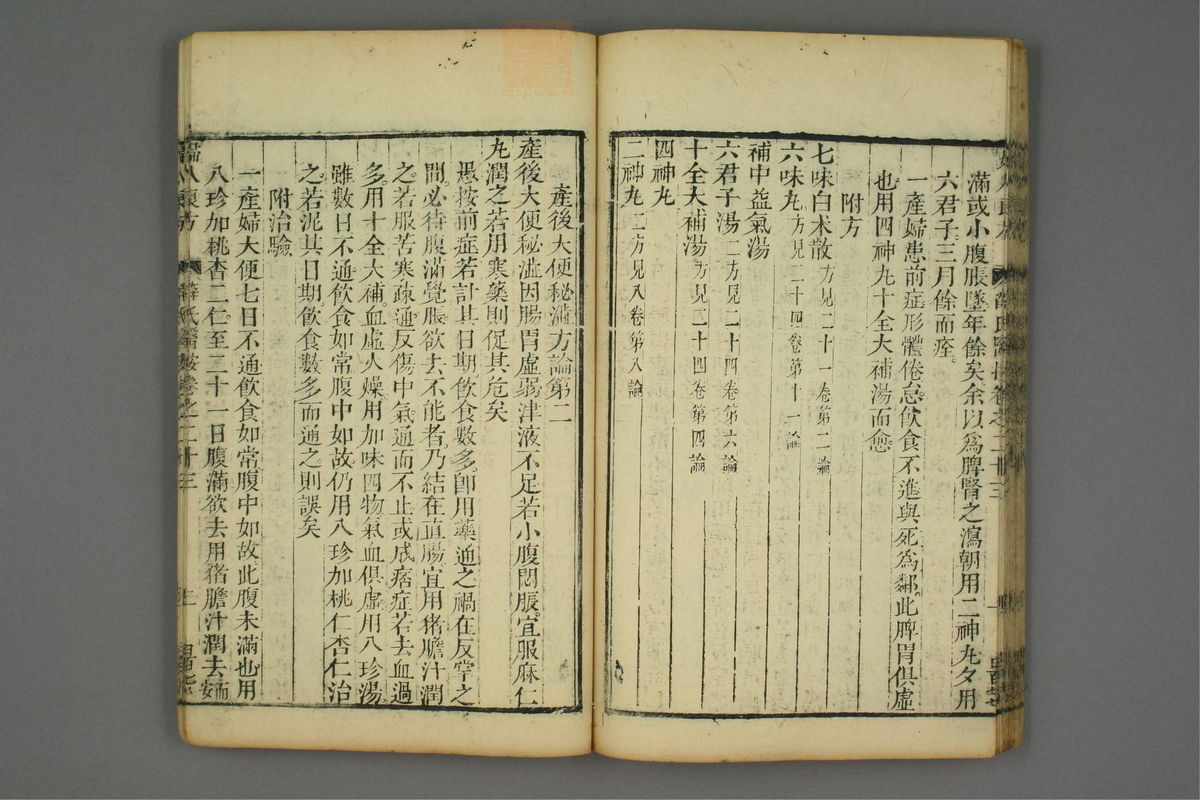 滿或小腹脹墜年餘矣余以爲脾腎之瀉朝用二神丸夕用
六君子三月餘而痊
一產婦患前症形體倦怠飲食不進與死爲鄰此脾胃俱虛
也用四神丸十全大補湯而愈
附方
七味白术散方見二十一卷第二論
六味丸方見二十四卷第十一論
補中益氣湯
六君子湯二方見二十四卷第六論
十全大補湯方見二十四卷第四論
四神丸
二神丸二方見八卷第八論
產後大便秘澁方論第二
產後大便秘澁因腸胃虛弱津液不足若小腹悶脹宜服麻仁
丸潤之若用寒藥則促其危矣
愚按前症若計其日期飲食數多卽用藥通之禍在反掌之
間必待腹滿覺脹欲去不能者乃結在直腸宜用猪膽汁潤
之若服苦寒疎通反傷中氣通而不止或成痞症若去血過
多用十全大補血虛火燥用加味四物氣血俱虛用八珍湯
雖數日不通飲食如常腹中如故仍用八珍加桃仁杏仁治
之若泥其日期飲食數多而通之則誤矣
附治驗
一產婦大便七日不通飲食如常腹中如故此腹未滿也用
八珍加桃杏二仁至二十一日腹滿欲去用猪膽汁潤去而安
薛氏醫按卷之二十三